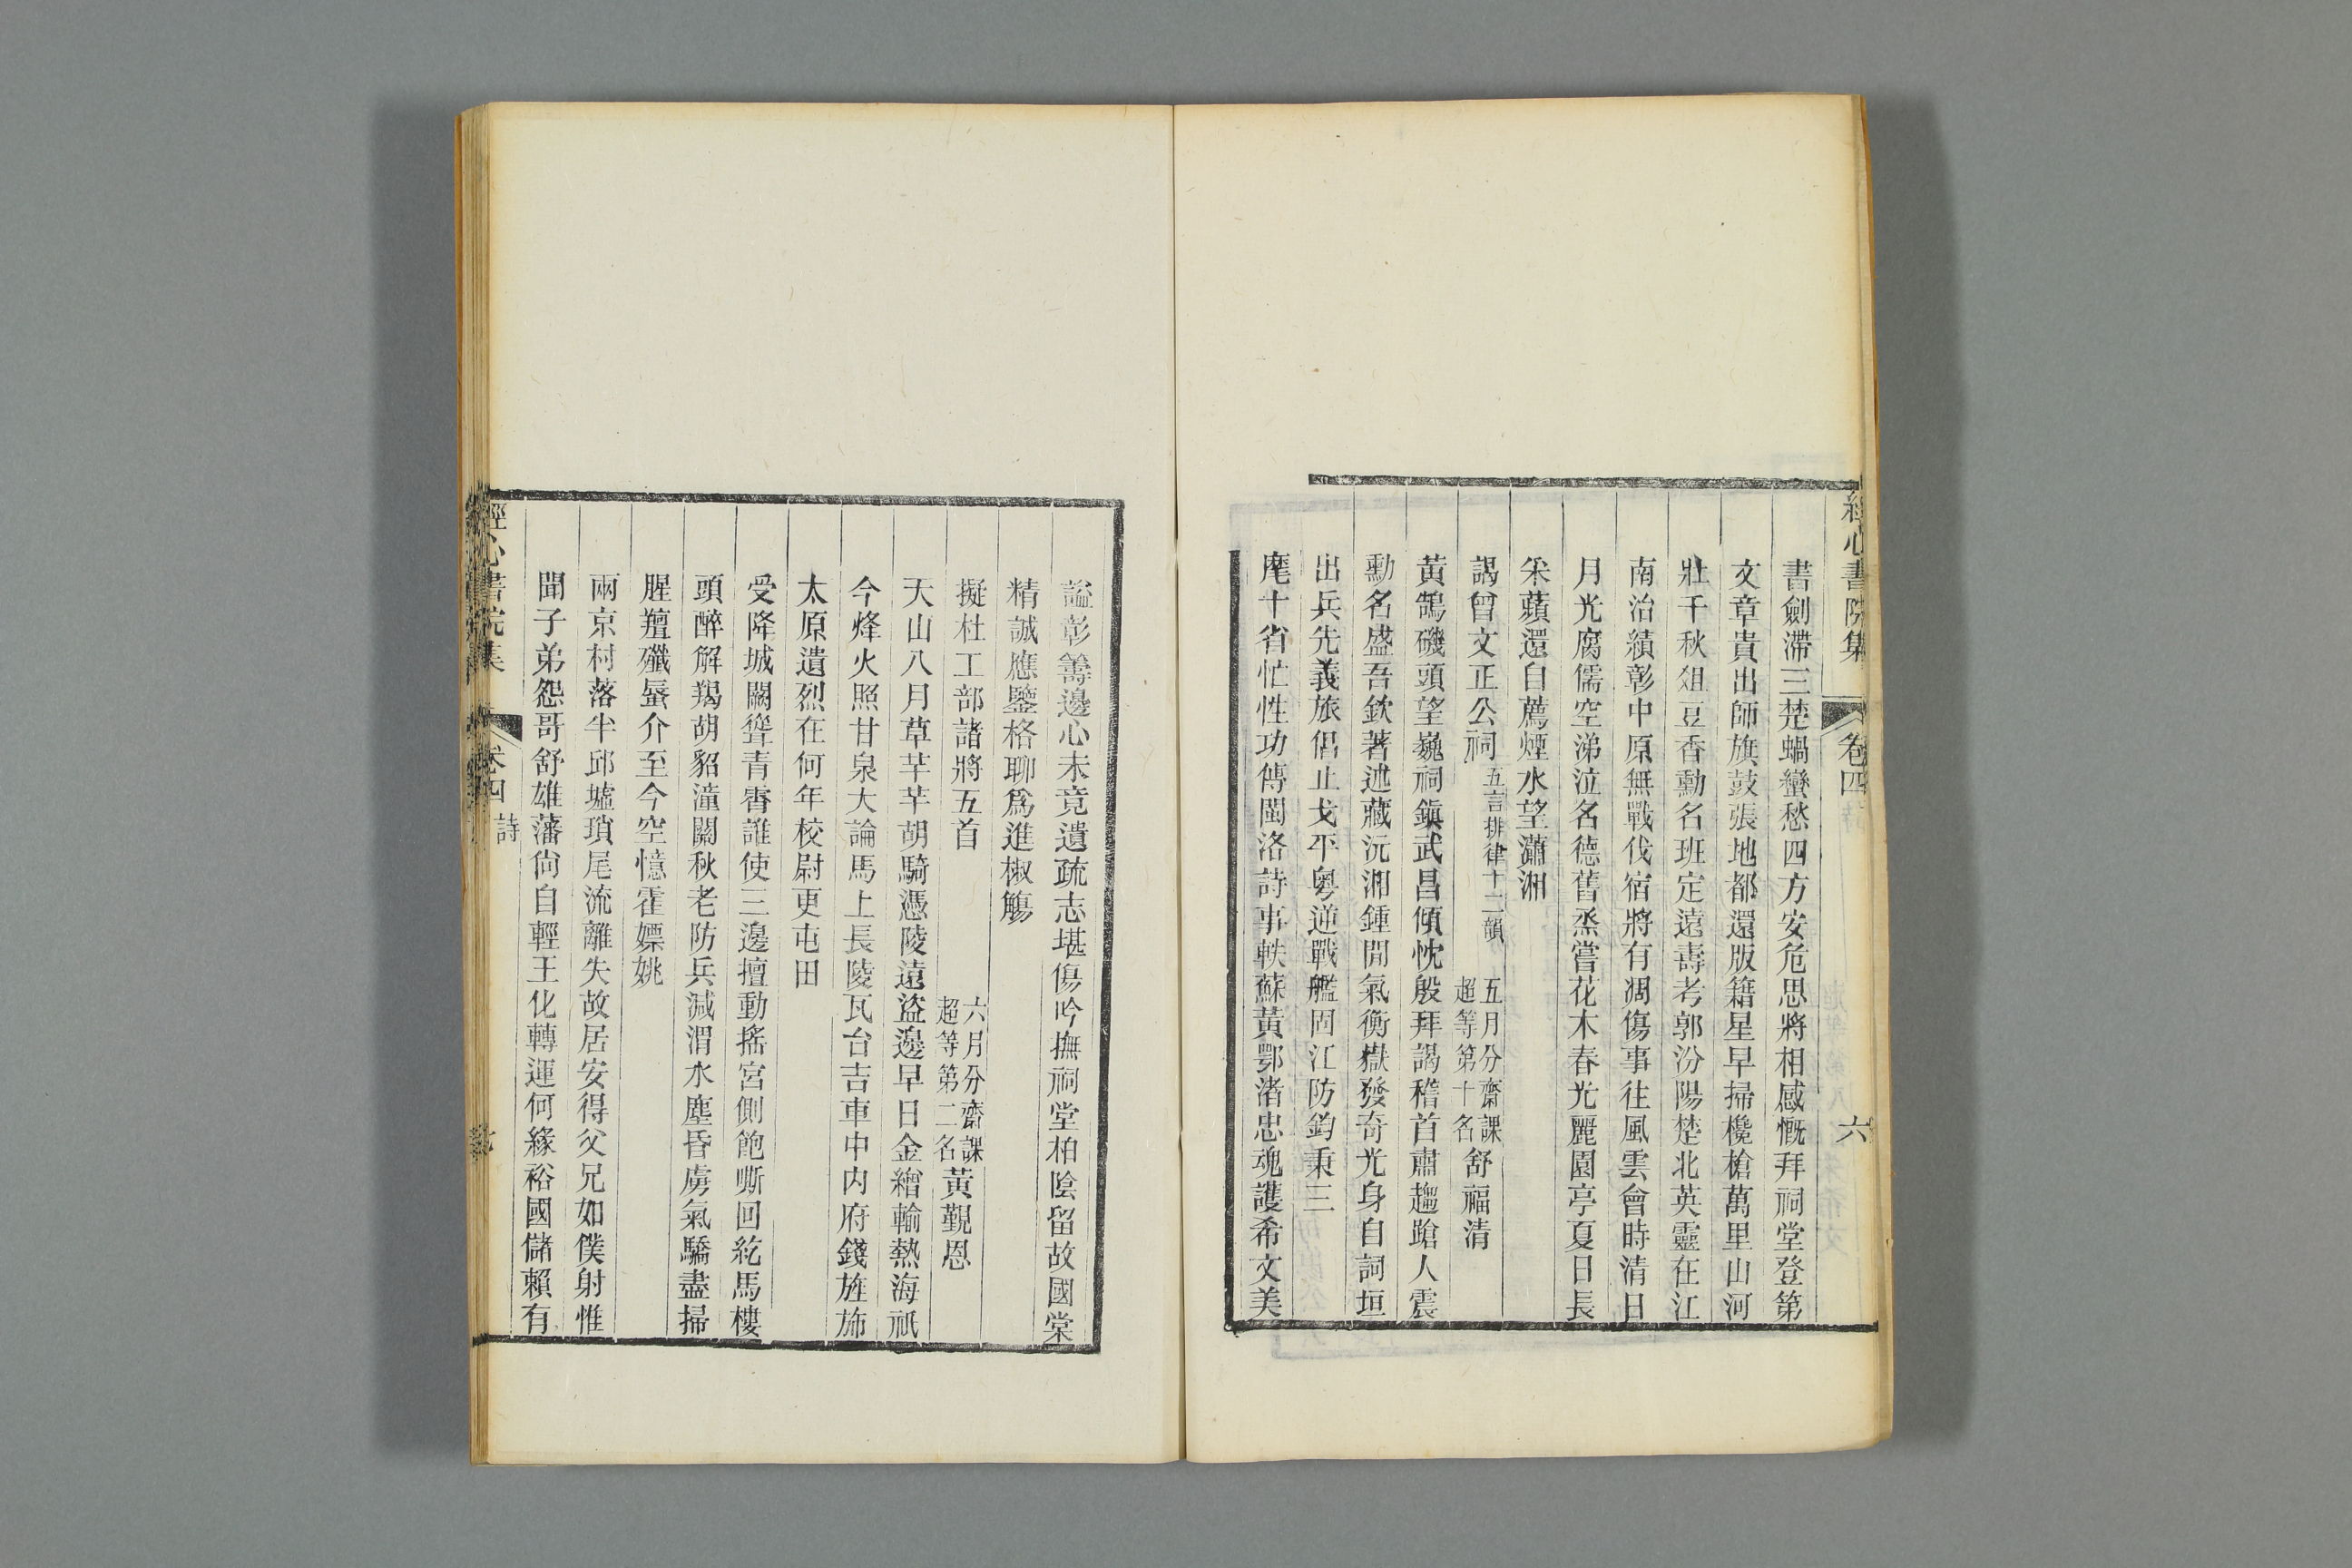 經心書院集 卷四 六
書劍滯三楚蝸蠻愁四方安危思將相感慨拜祠堂登第
文章貴出師旗鼓張地都還版籍星早掃欃槍萬里山河
壯千秋俎豆香勳名班定遠壽考郭汾陽楚北英靈在江
南治績彰中原無戰伐宿將有凋傷事往風雲會時清日
月光腐儒空涕泣名德舊烝嘗花木春光麗園亭夏日長
采蘋還自薦煙水望瀟湘
謁曾文正公祠五言排律十二韻 五月分齋課超等第十名舒福清
黃鵠磯頭望巍祠鎮武昌傾忱殷拜謁稽首肅趨蹌人震
勳名盛吾欽著述藏沅湘鍾閒氣衡嶽發奇光身自詞垣
出兵先義旅倡止戈平粵逆戰艦固江防鈞秉三
麾十省忙性功傳閩洛詩事軼蘇黃鄂渚忠魂護希文美
謚彰籌邊心未竟遺疏志堪傷吟撫祠堂柏陰留故國棠
精誠應鑒格聊爲進椒觴
擬杜工部諸將五首 六月分齋課超等第二名黃覲恩
天山八月草芊芊胡騎憑陵遠盜邊早日金繒輸熱海祇
今烽火照甘泉大論馬上長陵瓦台吉車中内府錢旌斾
太原遺烈在何年校尉更屯田
受降城闕聳青霄誰使三邊擅動搖宮側飽嘶回紇馬樓
頭醉解羯胡貂潼關秋老防兵減渭水塵昏虜氣驕盡掃
腥羶殲蜃介至今空憶霍嫖姚
兩京村落半邱墟瑣尾流離失故居安得父兄如僕射惟
聞子弟怨哥舒雄藩尙自輕王化轉運何緣裕國儲賴有
經心書院集 卷四 詩 七